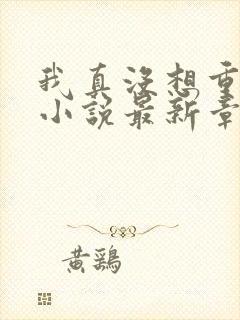 我真没想重
小说最新章
黄鹢